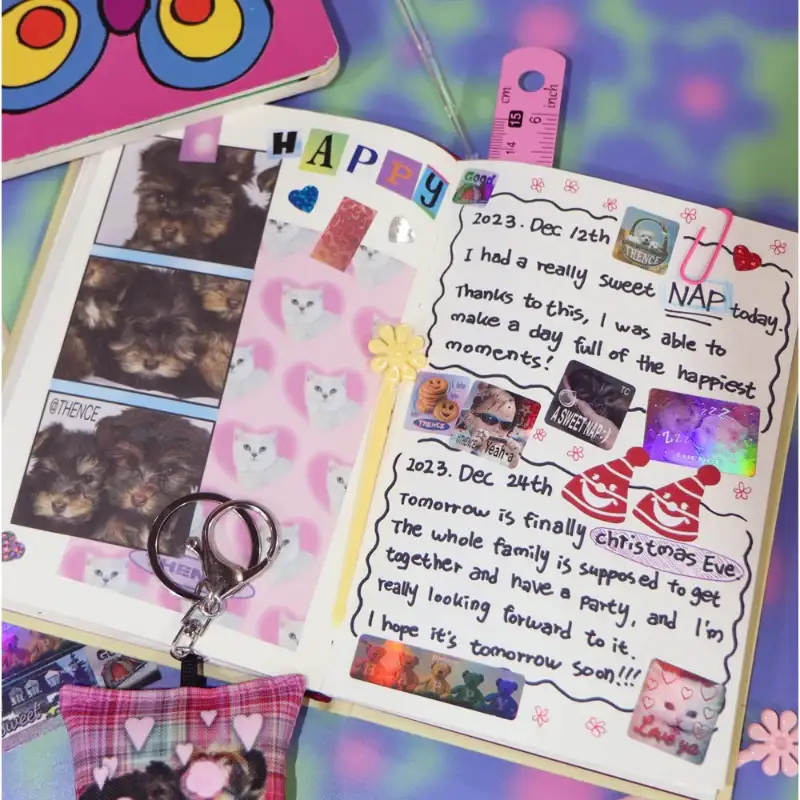 HAPPY
@THENCE
THENCE
cm
inch
15
14
6
Good
2023. Dec 12th
THENCE
I had a really sweet NAP today.
Thanks to this, I was able to
make a day full of the happiest
moments!
THENCE
THENCE
Yeah-a
TC
A SWEET NAP:)
ZZZ
ZZZ
2023. Dec 24th
Tomorrow is finally christmas Eve.
The whole family is supposed to get
together and have a party, and I'm
really looking forward to it.
I hope it's tomorrow soon!!!
HAPPY
Love ya
sweet